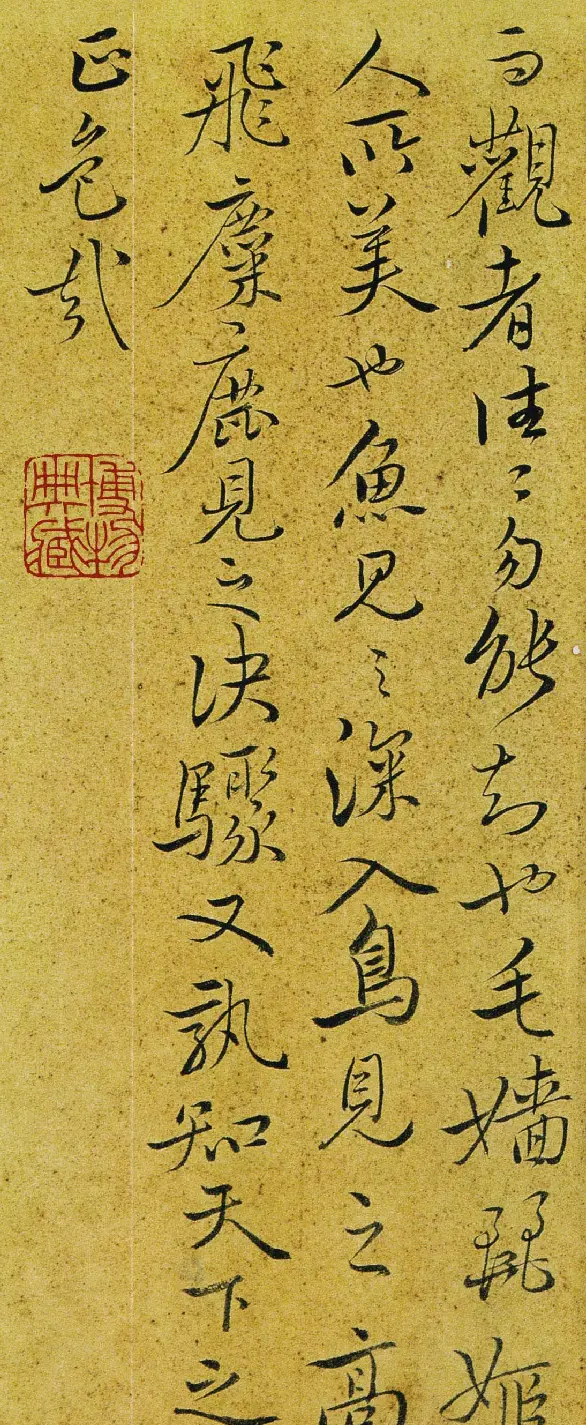 而觀者往〻勿能知也毛嬙麗姬
人所美也魚見之深入鳥見之高
飛麋鹿見之決驟又孰知天下之
正色哉
博物
典藏